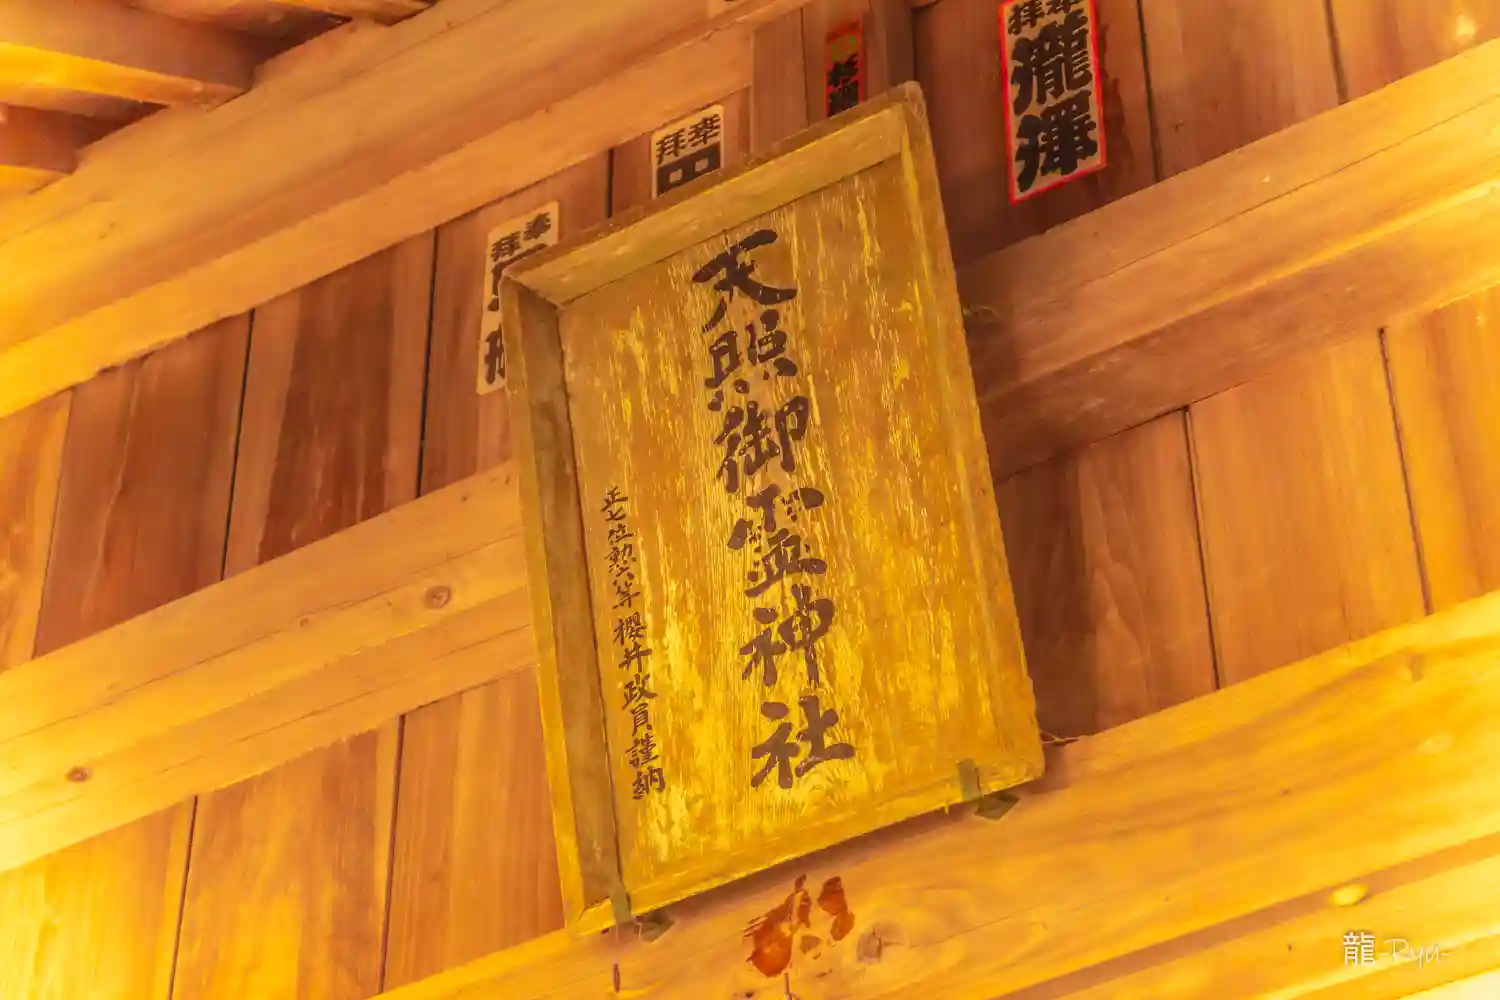 天照御霊神社
正七位勲六等 櫻井政員謹納
奉拝
瀧澤
奉拝
田
奉拝
龍 -Ryu-